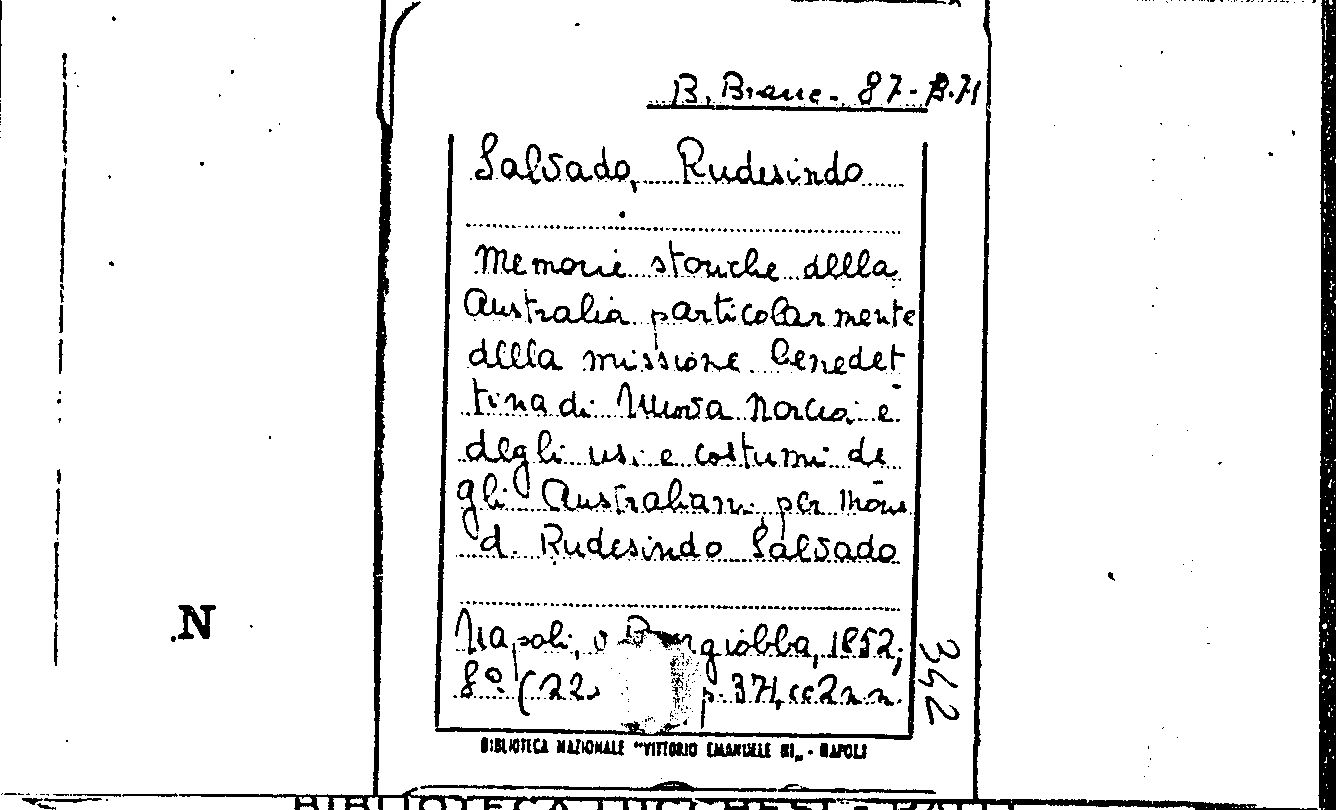 B. Branc. 87-B.71
Salvado, Rudesindo
Memorie storiche della
Australia particolarmente
della missione benedet
tina di Nuova Norcia e
degli usi e costumi de
gli Australiani per Mons
d. Rudesindo Salvado
Napoli, 1852,
8º (22. p. 371, cc 2 n.n.
342
N
BIBLIOTECA NAZIONALE "VITTORIO EMANUELE III„ - NAPOLI
BIBLIOTECA LUCCHESI - PALLI